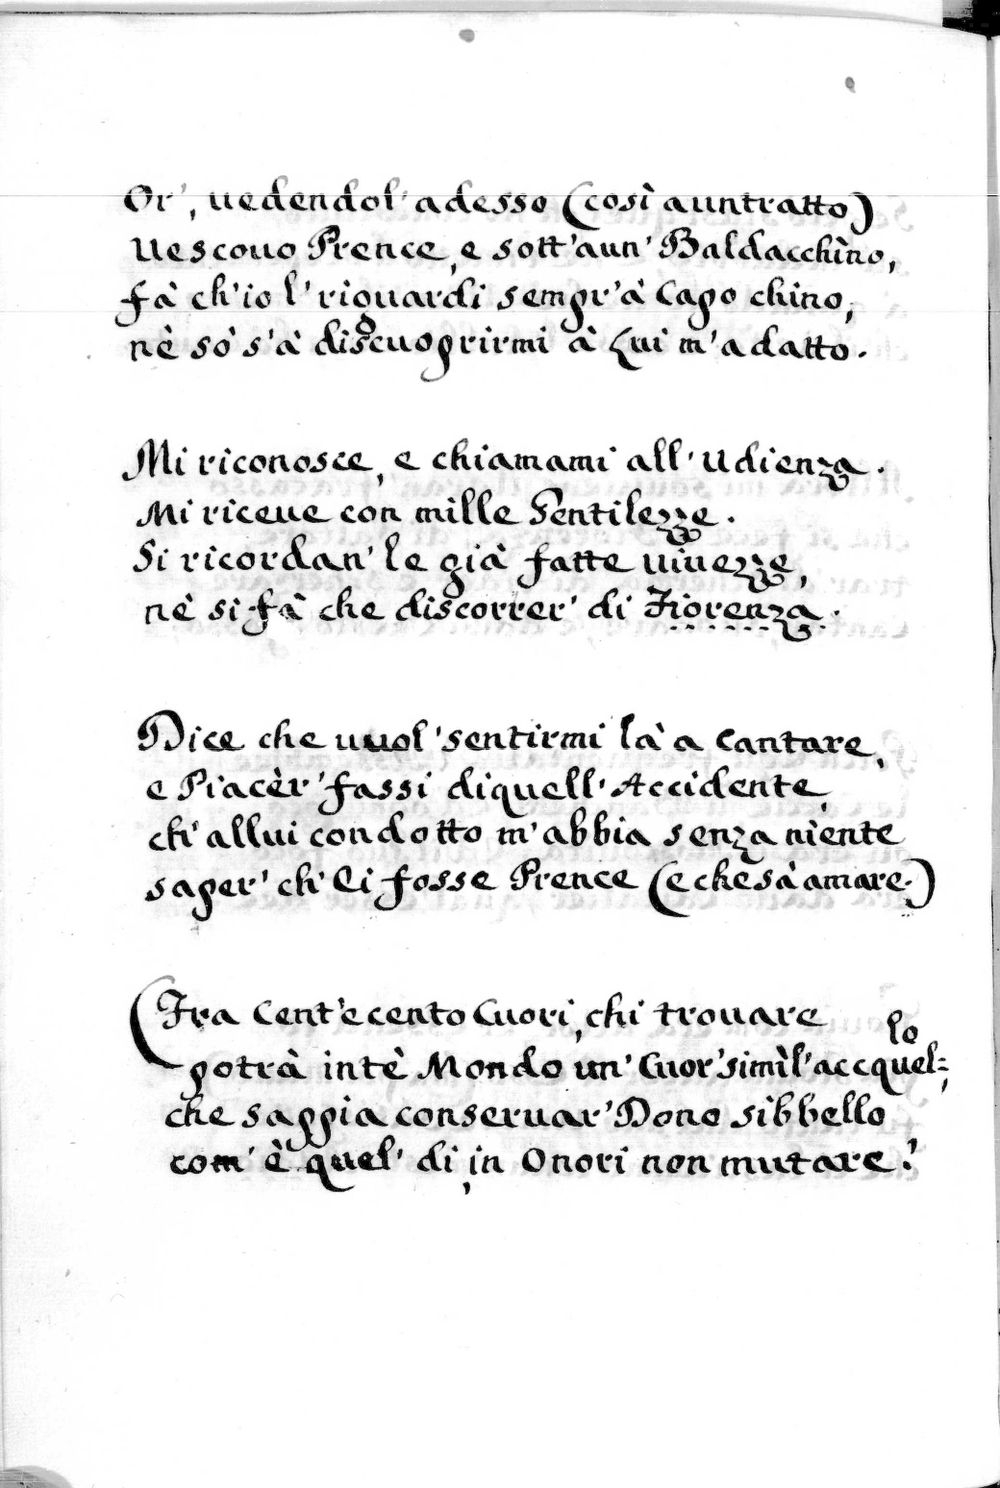 Or', uedendol' adesso (così auntratto)
Uescouo Prence, e sott'aun' Baldacchino,
fà ch'io l'riguardi sempr'à Capo chino,
nè sò s'à discuoprirmi à Lui m'adatto.
Mi riconosce, e chiamami all'Udienza.
Mi riceue con mille Gentilezze.
Si ricordan' le già fatte uiuezze,
nè si fà che discorrer' di Fiorenza.
Dice che uuol'sentirmi là a Cantare,
e Piacèr'fassi diquell'Accidente,
ch'allui condotto m'abbia senza niente
saper'ch'Ei fosse Prence (e chesà amare.)
(Fra Cent'e cento Cuori, chi trouare
potrà intè Mondo un'Cuor'simìl'accquel=lo,
che sappia conseruar'Dono sibbello
com'è quel' di, in Onori non mutare?